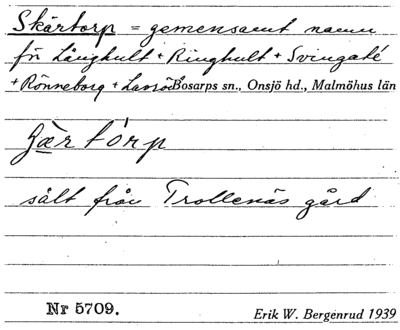 Skärtorp = gemensamt namn
för Långhult + Ringhult + Svingaté
+ Rönneborg + Bosarps sn., Onsjö hd., Malmöhus län
Jær tórp
sålt från Trollenäs gård
Nr 5709.
Erik W. Bergenrud 1939